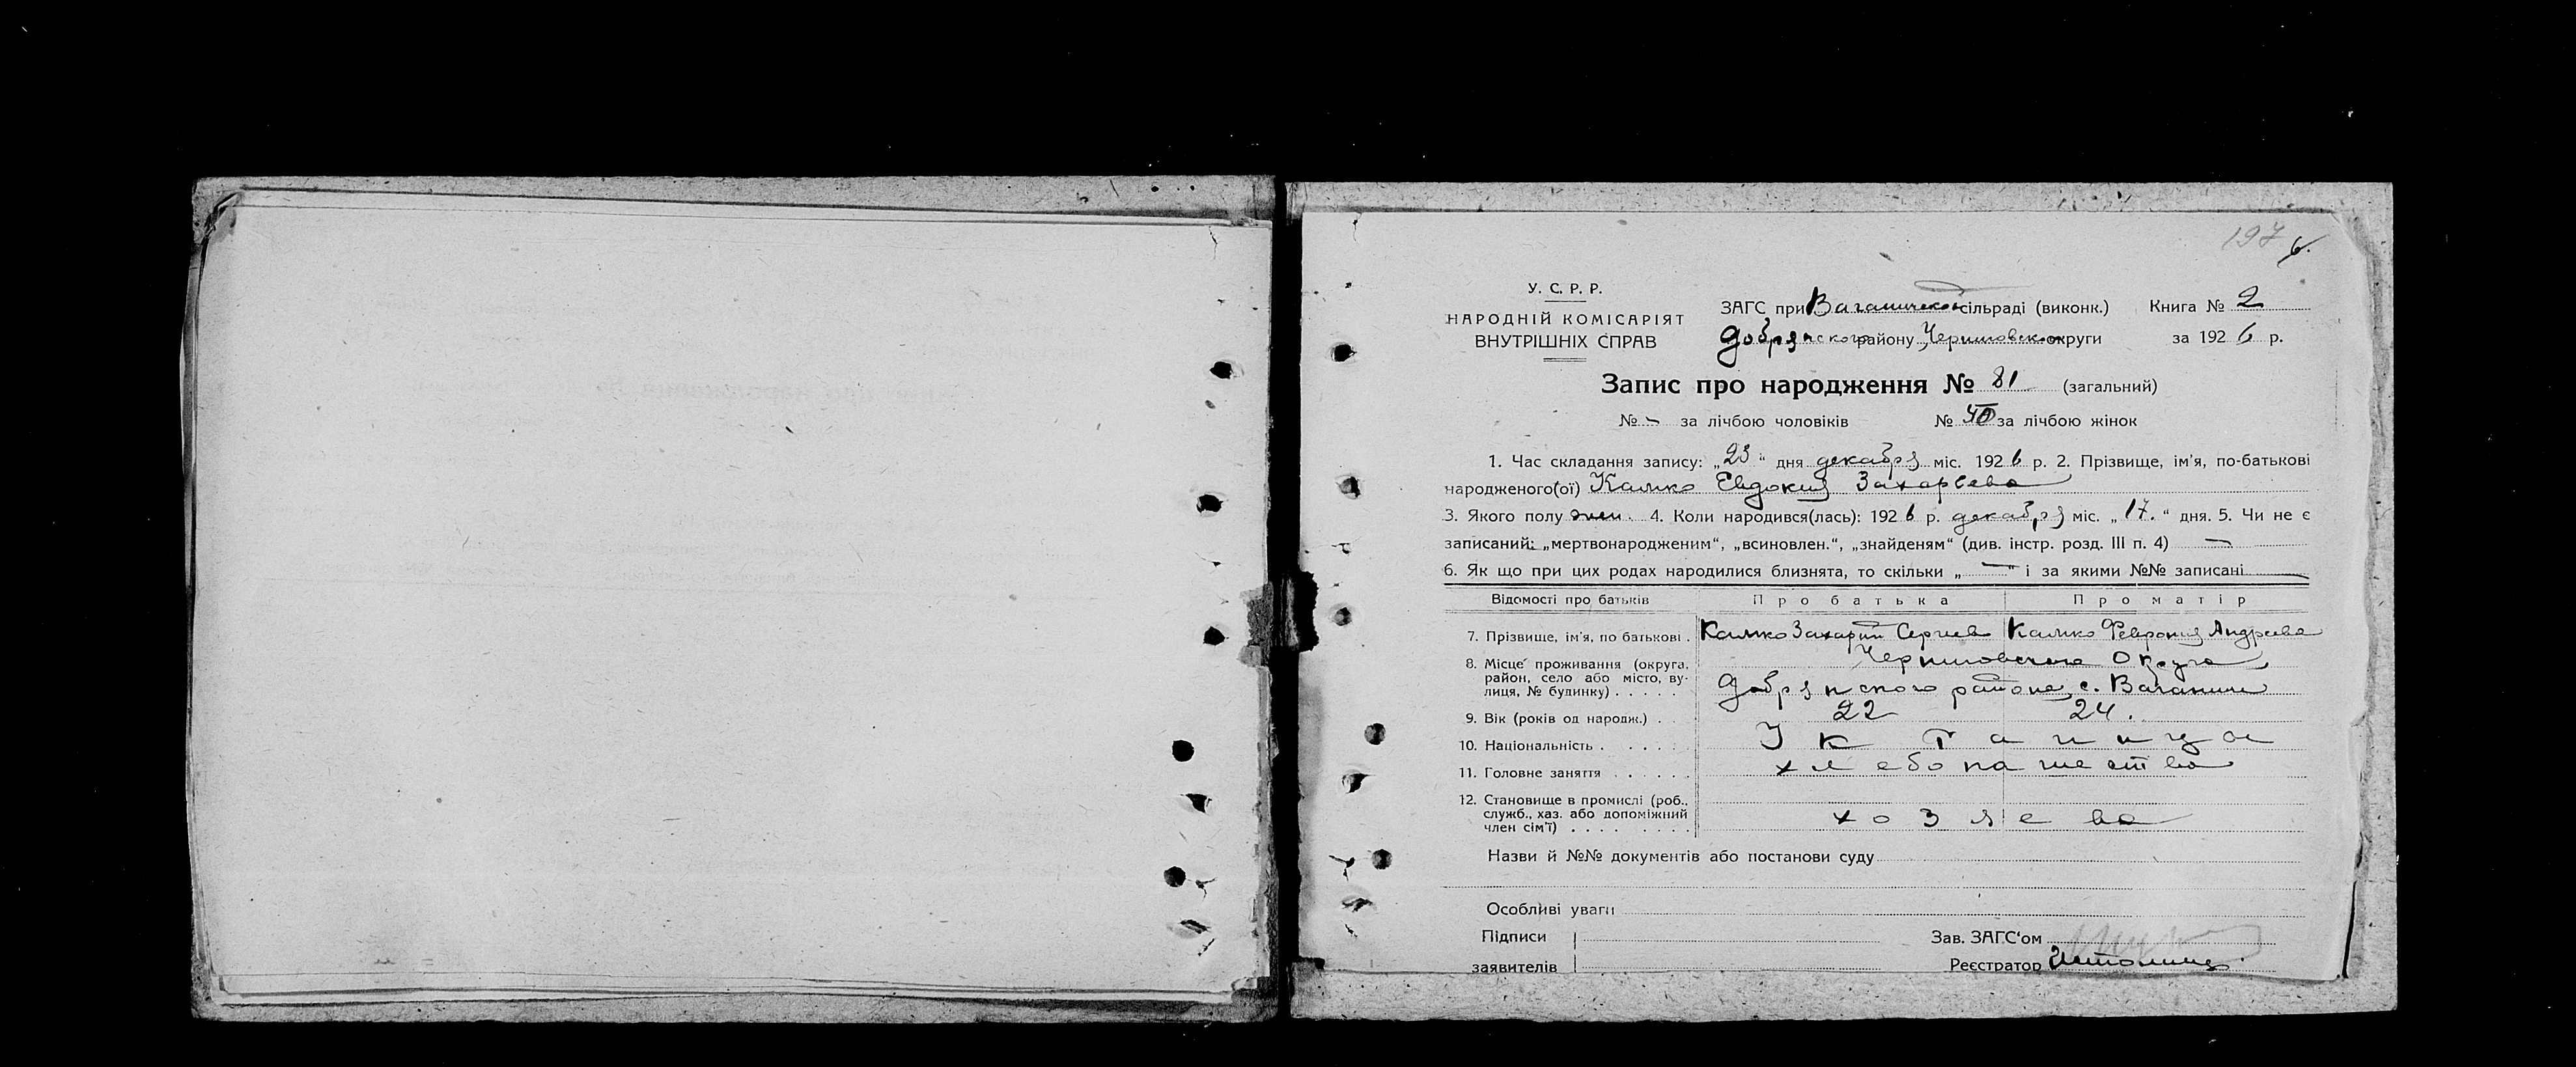 197 б.
У. С. Р. Р.
НАРОДНІЙ КОМІСАРІЯТ
ВНУТРІШНІХ СПРАВ
ЗАГС при Ваганичской сільраді (виконк.) Книга № 2
Добрянского району Черниговской округи за 1926 р.
Запис про народження № 81 (загальний)
№ - за лічбою чоловіків № 40 за лічбою жінок
1. Час складання запису: „23“ дня декабря міс. 1926 р. 2. Прізвище, ім'я, по-батькові
народженого(ої) Калко Евдокия Захарьева
3. Якого полу жен. 4. Коли народився(лась): 1926 р. декабря міс. „17.“ дня. 5. Чи не є
записаний: „мертвонародженим“, „всиновлен.“, „знайденям“ (див. інстр. розд. III п. 4) —
6. Як що при цих родах народилися близнята, то скільки „—“ і за якими №№ записані —
Відомості про батьків Про батька Про матір
7. Прізвище, ім'я, по батькові . Калко Захарий Сергиев Калко Феврония Андреева
8. Місце проживання (округа, Черниговская Округа
район, село або місто, ву-
лиця, № будинку) . . . . . Добрянского района, с. Ваганичи
9. Вік (років од народж.) . . 22 24.
10. Національність . . . . . .
11. Головне заняття . . . . . . хлебопашество
12. Становище в промислі (роб.,
служб., хаз. або допоміжний
член сім'ї) . . . . . . . . хозяева
Назви й №№ документів або постанови суду
Особливі уваги
Підписи Зав. ЗАГС'ом
заявителів Реєстратор